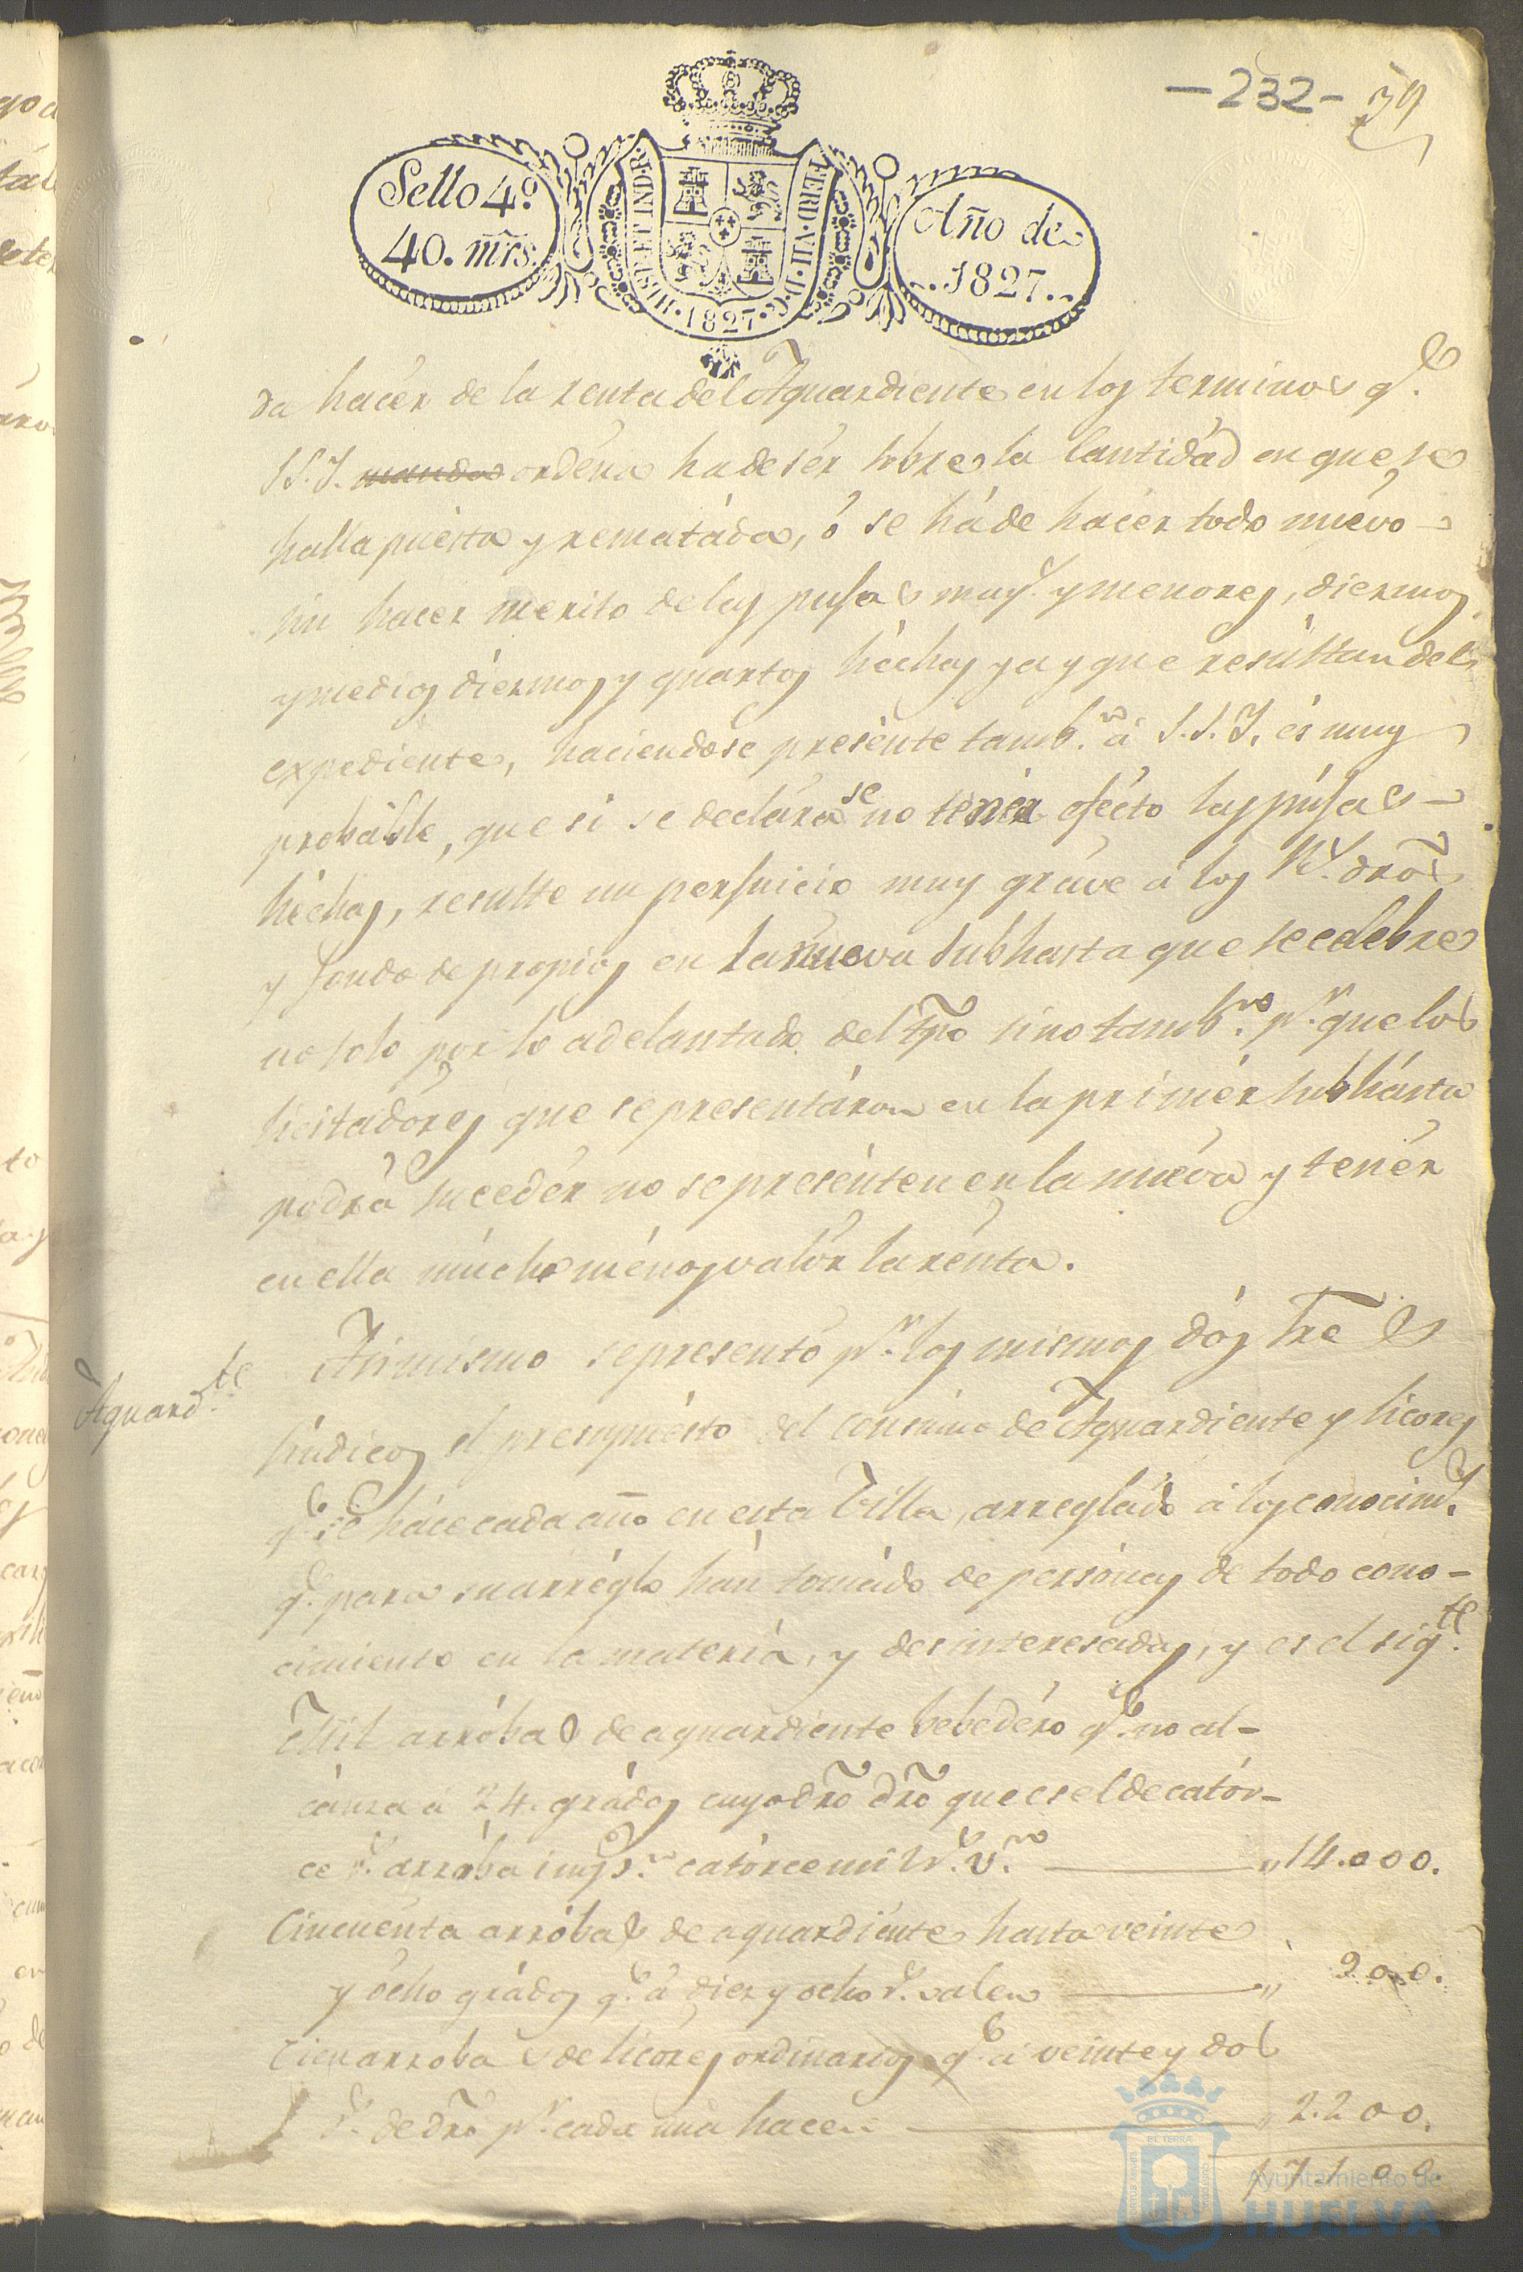 -232- 39
Sello 4º
40. mrs.
HISP. ET IND. R. FERD. VII. D. G. 1827.
Año de
1827.
da hacér de la renta del Aguardiente en los terminos q.e
S.S.Y. mandao ordéna ha de sér sobre la Cantidád en que se
halla puésta y rematáda, ó se há de hacér todo nuévo
sin hacer merito de las pujas may.s y menores, diezmos
y medios diezmos y quartos héchas ya y que resúltan del
expediente, haciendose presénte tamb.n á S.S.Y. és muy
probáble, que si se declárase no tenér efécto las pújas
héchas, resulte un perjuicio muy gráve á los R.s dros
y fondo de propios en la nueva Subhasta que se celebre
no solo por lo adelantado del tpo sino tamb.n p.r que los
licitadóres que se presentáron en la primér subhásta
podrá sucedér no se presénten en la nuéva y tenér
en ella múcho ménos valór la rénta.
Aguard.te
Asimismo se presentó p.r los mismos dós Sres
Síndicos el presupuésto del Consumo de Aguardiente y licores
q.e se háce cada año en esta Villa, arregládo á los conocim.s
q.e para su arréglo hán tomádo de persónas de todo cono-
cimiento en la matéria, y desinteresadas, y es el sig.te
Mil arróbas de aguardiente bebedéro q.e no al-
cánza á 24. grádos cuyo dro dro que es el de catór-
ce r.s arróba imp.n catórce mil r.s v.n " 14.000.
Cincuénta arróbas de aguardiénte hasta veinte
y ócho grádos q.e á diez y ocho r.s valen " 900.
Cien arrobas de licores ordinarios q.e á veinte y dos
r.s de dro p.r cada una hacen " 2.200.
17.100.
EL TERRÆ
Ayuntamiento de
HUELVA